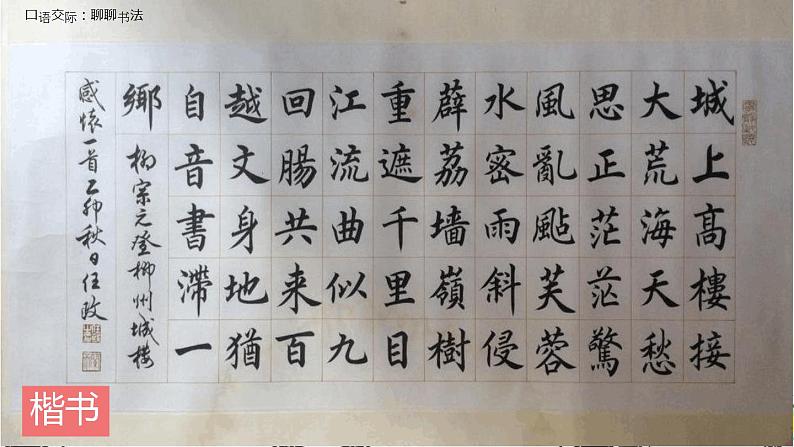 口语交际：聊聊书法
城上高樓接
大荒海天愁
思正茫茫驚
風亂颭芙蓉
水密雨斜侵
薜荔墙嶺樹
重遮千里目
江流曲似九
回腸共来百
越文身地猶
自音書滯一
鄉 柳宗元登柳州城楼
感懷一首乙卯秋日任政
楷书